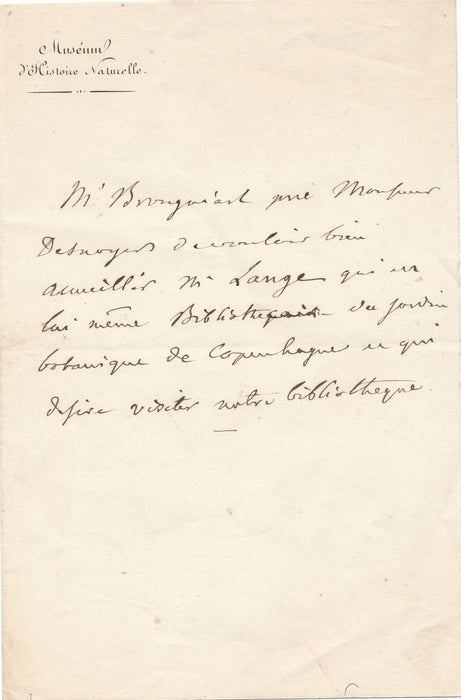 Muséum
d'Histoire Naturelle.
Mr Brongniart prie Monsieur
Desnoyers de vouloir bien
accueillir Mr Lange qui est
lui même Bibliothecaire du jardin
botanique de Copenhague et qui
desire visiter notre bibliotheque.